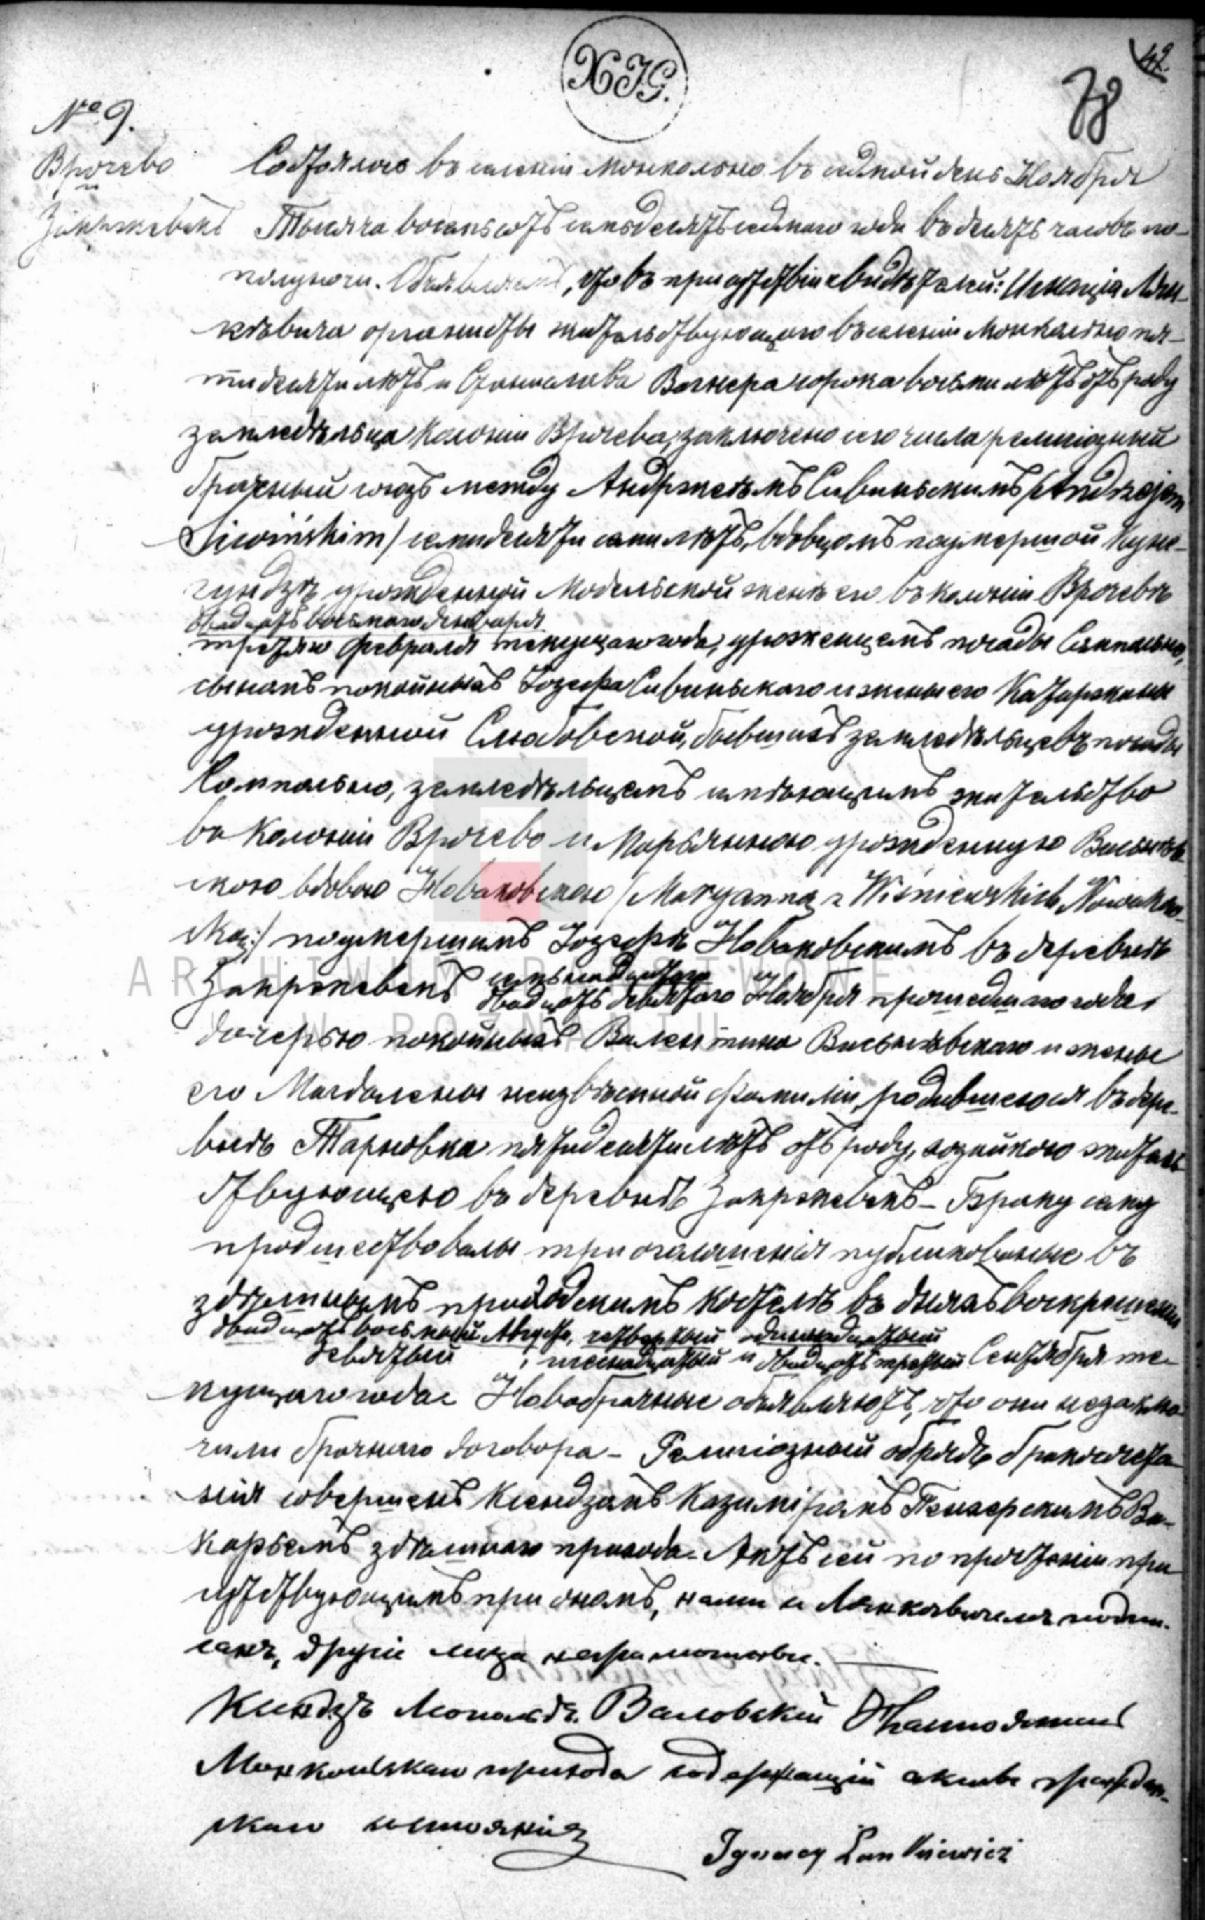 ХІG.
42.
78
№ 9.
Врочево
Закржевекъ
Состоялось въ селеніи Монкольно въ седмой день Ноября
Тысяча восемьсотъ семьдесятъ седмаго года въ десять часовъ по-
полуночи. Объявляемъ, что въ присутствіи свидѣтелей: Игнація Лян-
кевича органисты жительствующаго въ селеніи Монкольно пя-
тидесяти лѣтъ и Станислава Вагнера сорока восьми лѣтъ отъ роду
земледѣльца Колоніи Врочева, заключено сего числа религіозный
брачный союзъ между Андржеемъ Сивиньскимъ /Andrzejem
Siwińskim/ семидесяти семи лѣтъ, вдовцомъ по умершой Куне-
гундѣ урожденной Модельской женѣ его въ колоніи Врочевѣ
двадцать восьмаго Января
третяго Февраля текущаго года, уроженцемъ посады Сомпольно,
сыномъ покойныхъ Іозефа Сивиньскаго и жены его Катаржины
урожденной Слюбовской, бывшихъ земледѣльцевъ посады
Сомпольно, земледѣльцемъ имѣющимъ жительство
въ Колоніи Врочево и Марьянною урожденную Висьнев-
скою вдовою Новаковскою /Maryanna z Wiśniewskich Nowakow-
ska:/ по умершимъ Іозефѣ Новаковскимъ въ деревнѣ
семнадцатаго
Закржевекъ двадцать девятаго Ноября прошедшаго года,
дочерью покойныхъ Валентина Висьневскаго и жены
его Магдалены неизвѣстной фамиліи, родившеюся въ дере-
внѣ Тарновка пятидесяти лѣтъ отъ роду, хозяйкою житель
ствующею въ деревнѣ Закржевекъ – Браку сему
предшествовали три оглашенія публикованые въ
здѣшнымъ приходскимъ костелѣ въ дняхъ воскрешени
двадцать восьмый Августа, четвертый одинадцатый
девятый , шенадцатый и двадцать третый Сентября те-
кущаго года. Новобрачные объявляютъ, что они незаклю-
чили брачнаго договора – Религіозный обрядъ бракосочета-
нія совершенъ Ксендзомъ Казиміромъ Пенхерскимъ Ви-
карьемъ здѣшнаго прихода. Актъ сей по прочтеніи при
сутствующимъ при ономъ, нами и Лянкевичемъ подпи-
санъ, другіе лица неграмотны.
Ксендзъ Леопольдъ Валовскій Настоятель
Монкольскаго прихода содержащій акты граждан-
скаго состоянія
Ignacy Lankiewicz
ARCHIWUM PAŃSTWOWE
W POZNANIU